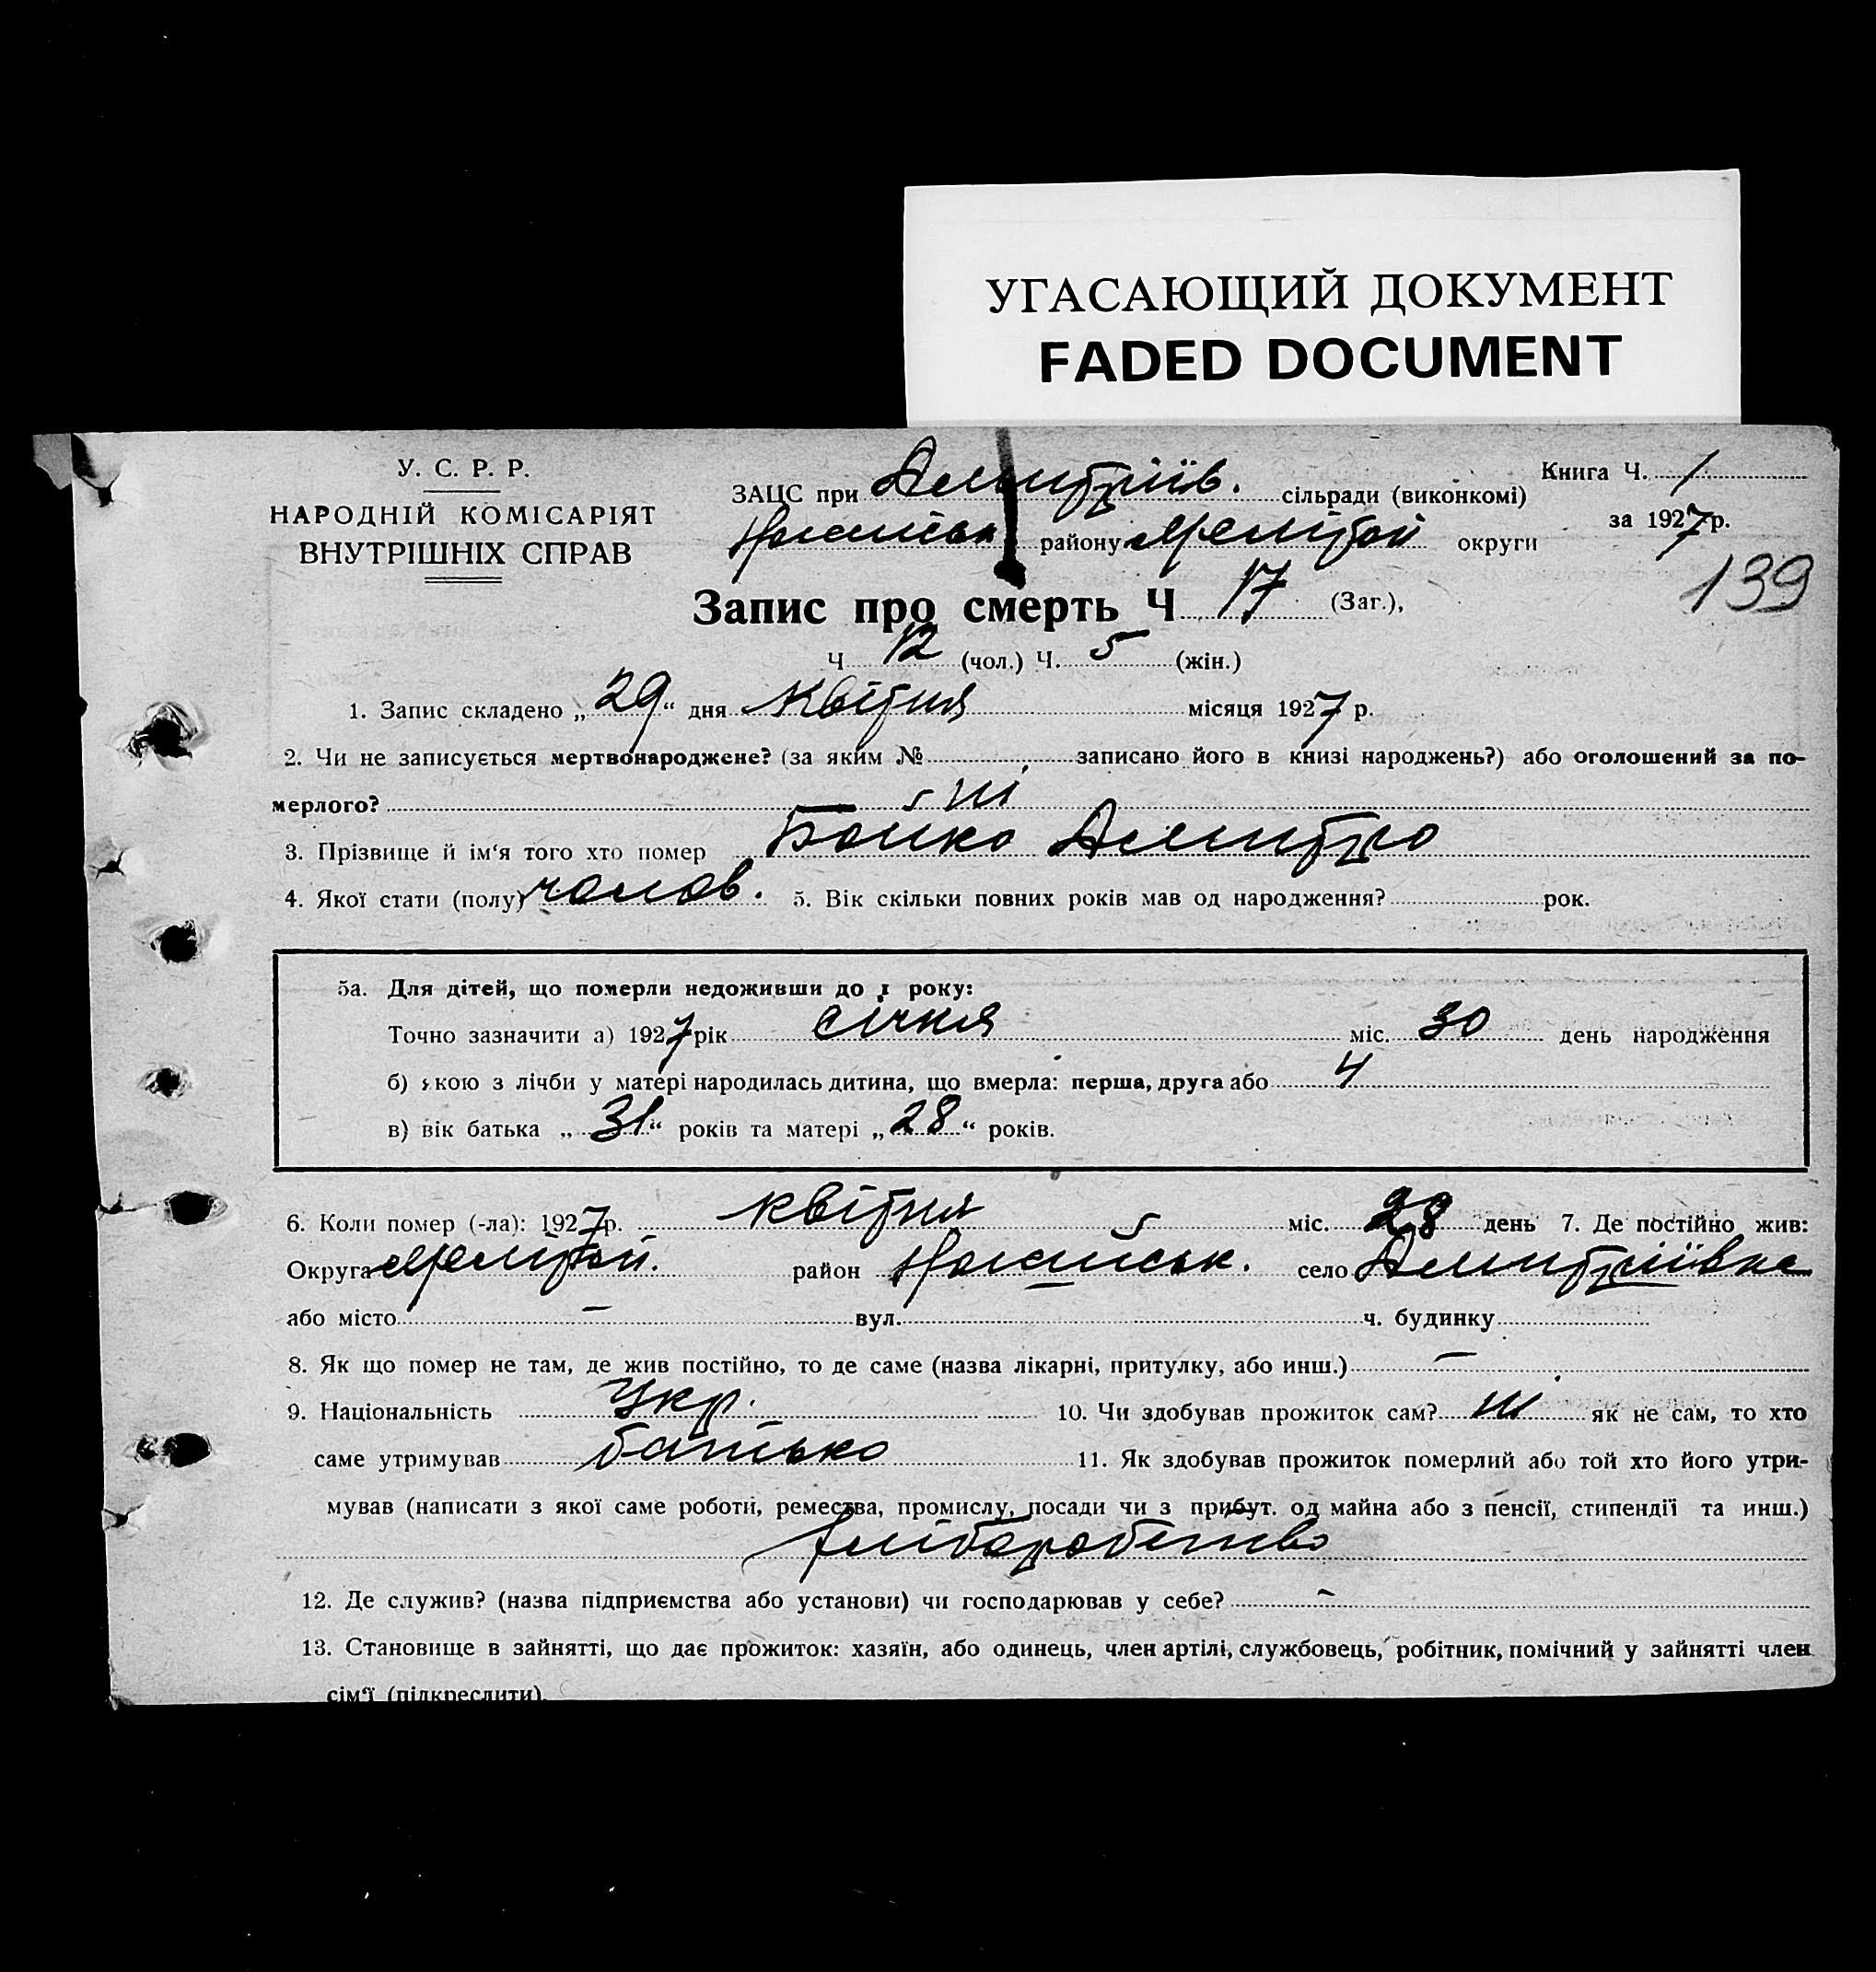 УГАСАЮЩИЙ ДОКУМЕНТ
FADED DOCUMENT
У. С. Р. Р.
НАРОДНІЙ КОМІСАРІЯТ
ВНУТРІШНІХ СПРАВ
ЗАЦС при Дмитріїв. сільради (виконкомі)
Ногайськ району Мелітоп округи
Книга Ч. 1
за 1927 р.
139
Запис про смерть Ч 17 (Заг.),
Ч 12 (чол.) Ч. 5 (жін.)
1. Запис складено „ 29 “ дня квітня місяця 1927 р.
2. Чи не записується мертвонароджене? (за яким № записано його в книзі народжень?) або оголошений за по-
мерлого? ні
3. Прізвище й ім‘я того хто помер Бойко Дмитро
4. Якої стати (полу) чолов. 5. Вік скільки повних років мав од народження? рок.
5а. Для дітей, що померли недоживши до 1 року:
Точно зазначити а) 1927 рік січня міс. 30 день народження
б) якою з лічби у матері народилась дитина, що вмерла: перша, друга або 4
в) вік батька „ 31 “ років та матері „ 28 “ років.
6. Коли помер (-ла): 1927 р. квітня міс. 28 день 7. Де постійно жив:
Округа Мелітоп. район Ногайськ. село Дмитріївка
або місто – вул. ч. будинку
8. Як що помер не там, де жив постійно, то де саме (назва лікарні, притулку, або инш.) –
9. Національність Укр. 10. Чи здобував прожиток сам? ні як не сам, то хто
саме утримував батько 11. Як здобував прожиток померлий або той хто його утри-
мував (написати з якої саме роботи, ремества, промислу, посади чи з прибут. од майна або з пенсії, стипендії та инш.)
хліборобство
12. Де служив? (назва підприємства або установи) чи господарював у себе? –
13. Становище в зайнятті, що дає прожиток: хазяїн, або одинець, член артілі, службовець, робітник, помічний у зайнятті член
сім‘ї (підкреслити).